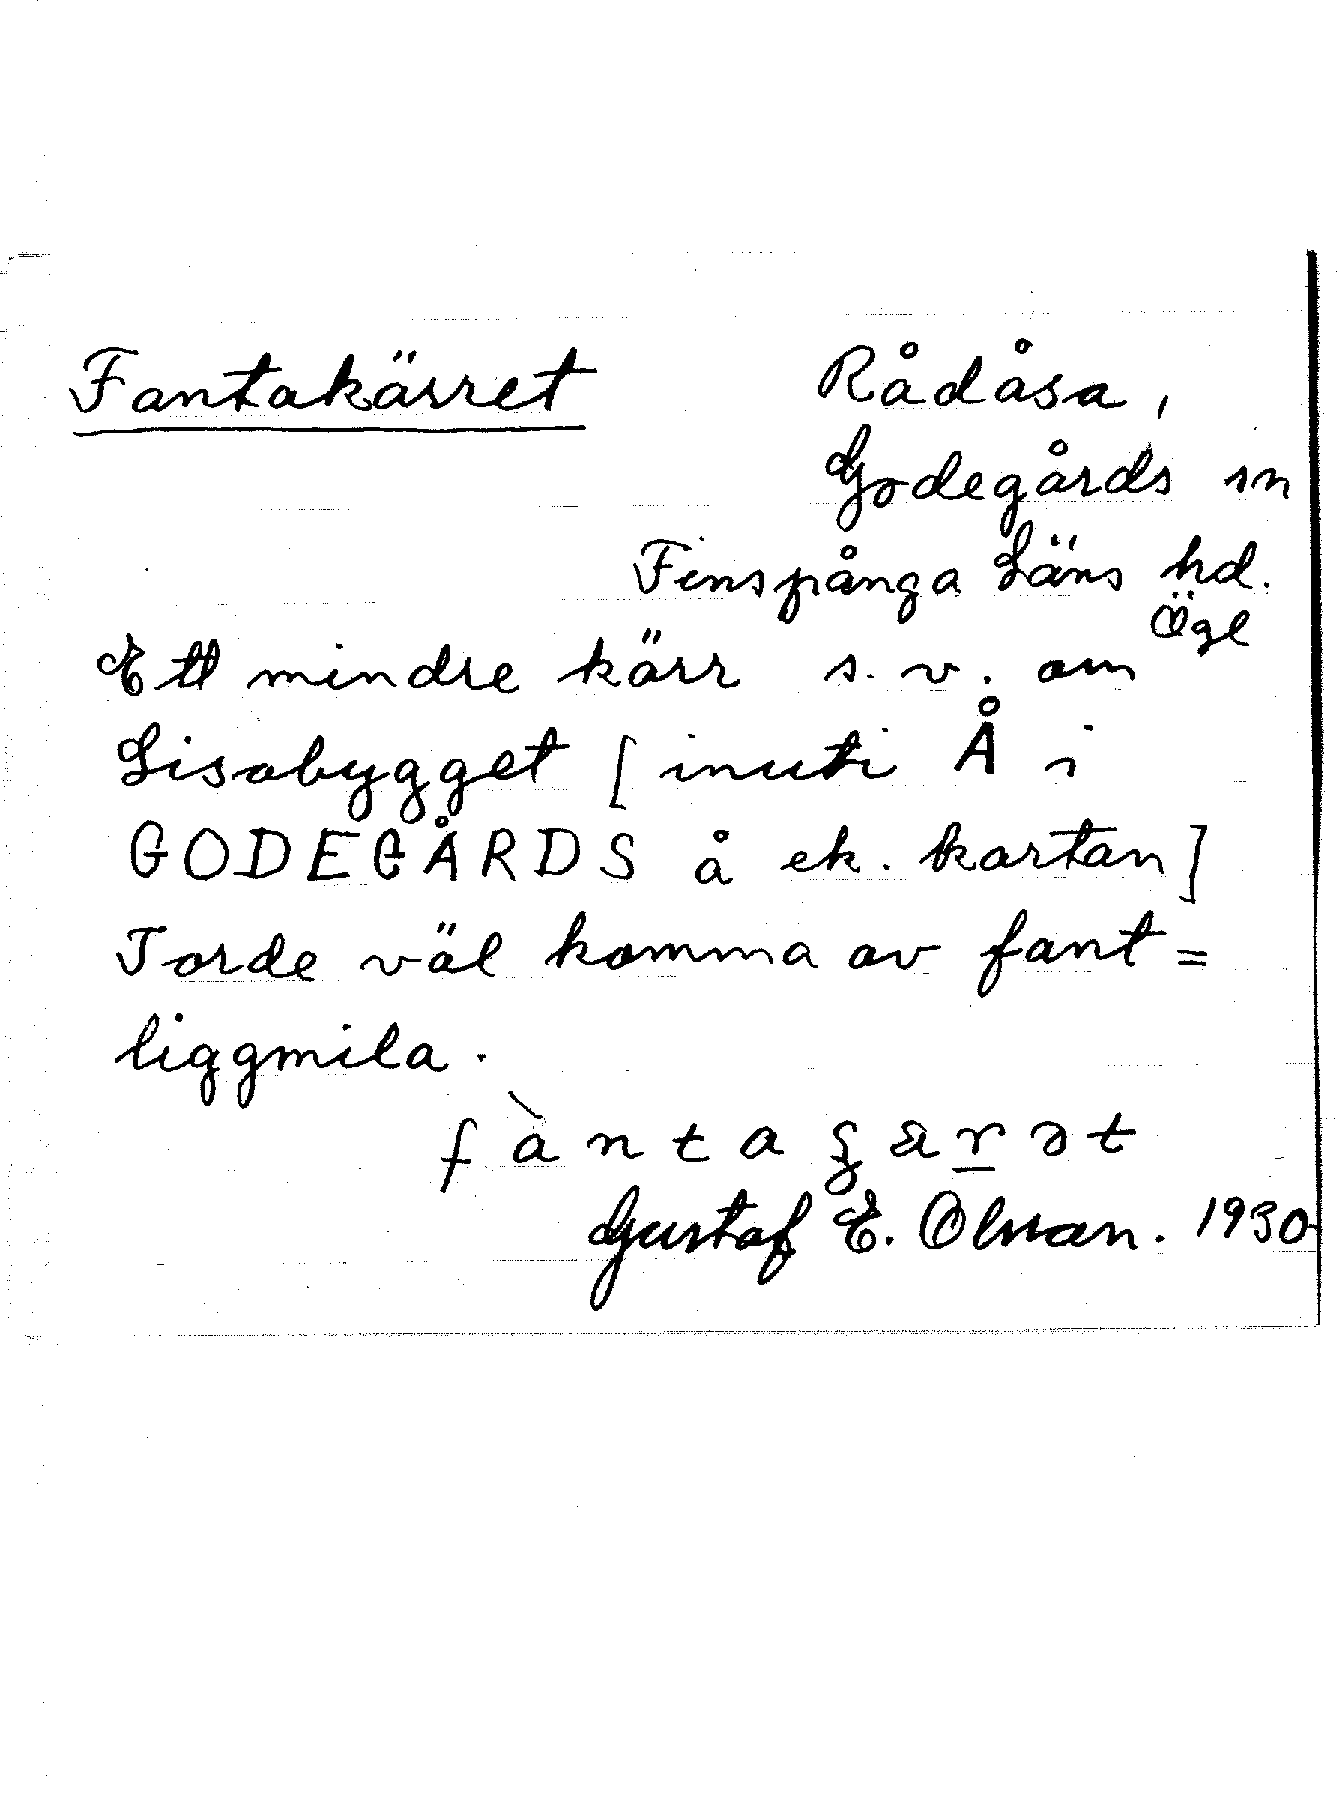 Fantakärret
Rådåsa,
Godegårds sn
Finspånga Läns hd.
Ögl
Ett mindre kärr s. v. om
Lisabygget [inuti Å i
GODEGÅRDS å ek. kartan]
Torde väl komma av fant =
liggmila.
Gustaf E. Olsson. 1930